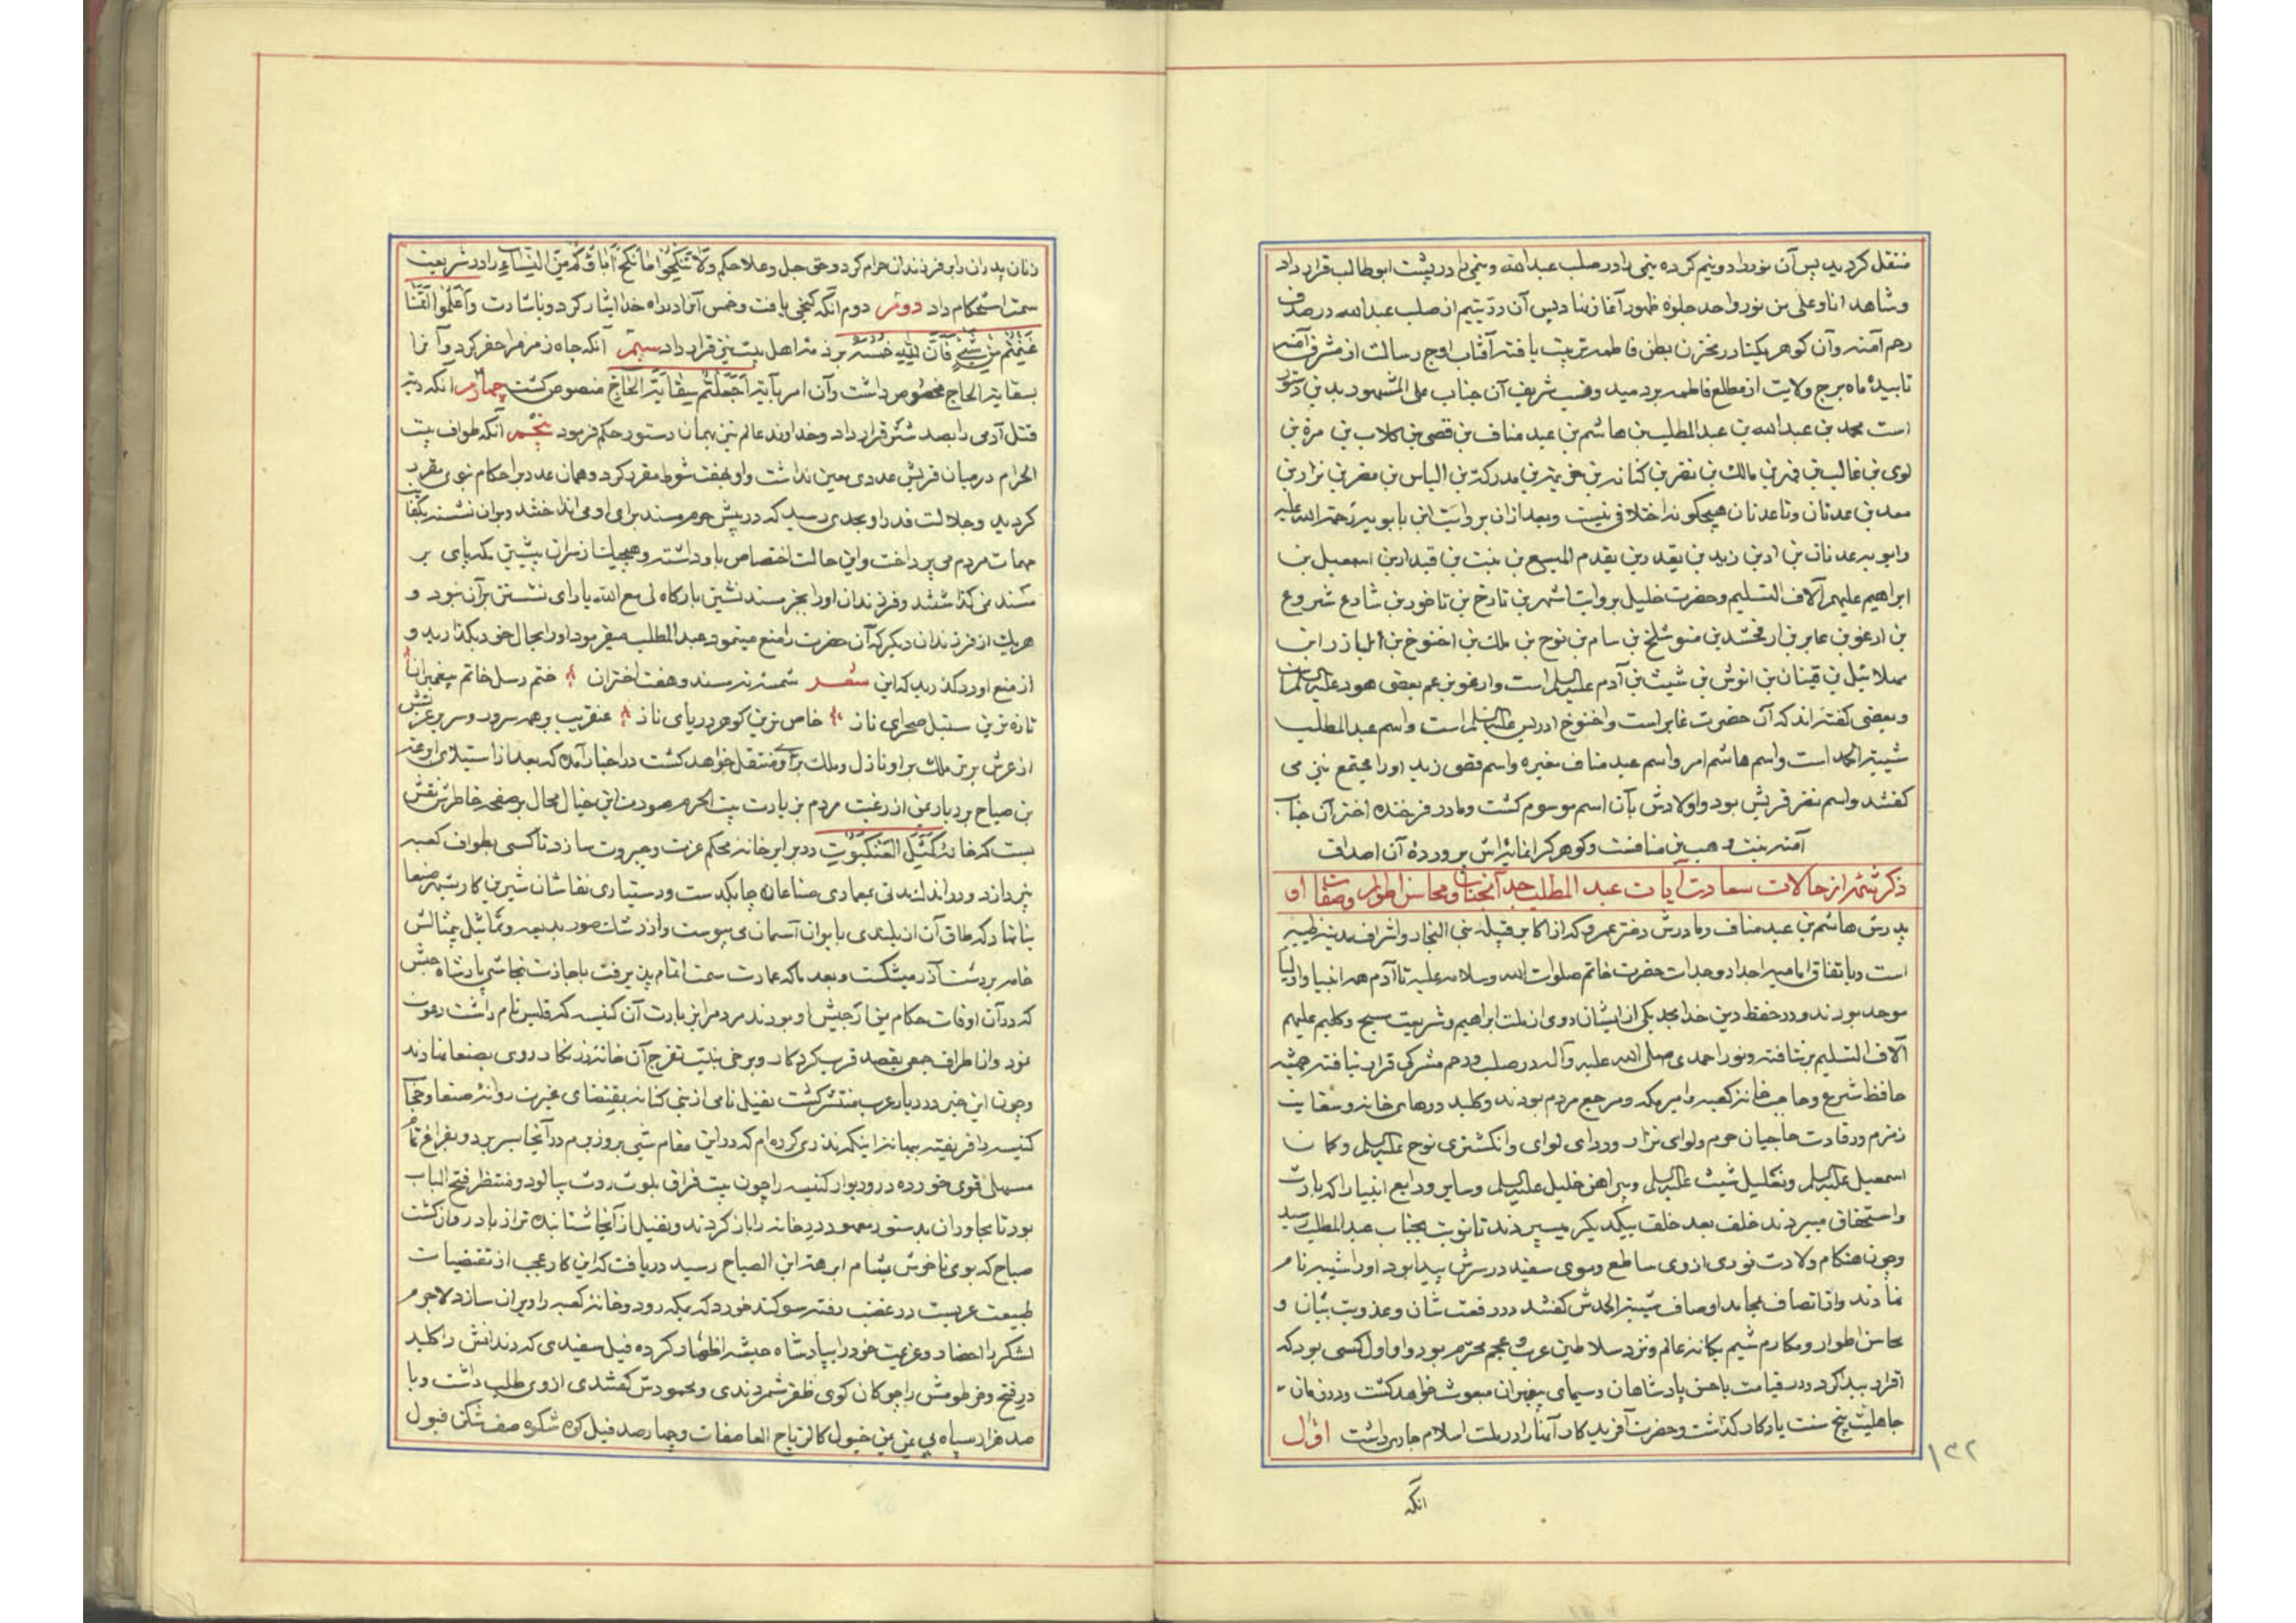 منتقل کردید پس آن نور را دو نیم کرده نیمی را در صلب عبدالله و نیمی را در پشت ابوطالب قرار داد
و شاهد انا و علی من نور واحد جلوه ظهور آغاز نهاد پس آن در یتیم از صلب عبدالله در صدف
رحم آمنه و آن کوهر یکتا در مخزن بطن فاطمه تربیت یافته آفتاب اوج رسالت از مشرق آمنه
تابید و ماه برج ولایت از مطلع فاطمه بردمید و نسب شریف آن جناب علی المشهور بدین دستور
است محمد بن عبدالله بن عبدالمطلب بن هاشم بن عبد مناف بن قصی بن کلاب بن مرة بن
لوی بن غالب بن فهر بن مالک بن نضر بن کنانه بن خزیمة بن مدرکة بن الیاس بن مضر بن نزار بن
معد بن عدنان و تا عدنان هیچکونه اختلافی نیست و بعد از آن بروایت ابن بابویه رحمة الله علیه
عدنان بن اد بن زید بن یقدد بن یقدم الهمیسع بن نبت بن قیدار بن اسمعیل بن
ابراهیم علیهم آلاف التسلیم و حضرت خلیل بروایت اشهر بن تارخ بن ناخور بن شارع شروع
بن ارغو بن عابر بن ارفخشد بن متوشلخ بن سام بن نوح بن ملک بن اخنوخ بن
مهلائیل بن قینان بن انوش بن شیث بن آدم علیه السلم است و ارغو بزعم بعضی هود علیه السلام است
و بعضی کفته اند که آن حضرت عابر است و اخنوخ ادریس علیه السلم است و اسم عبدالمطلب
شیبة الحمد است و اسم هاشم امر و اسم عبد مناف مغیره و اسم قصی زید او را مجتمع نیز می
کفتند و اسم نضر قریش بود و اولادش بآن اسم موسوم کشت و مادر فرخنده اختر آن جناب
آمنه بنت وهب بن منافست و کوهر کرانمایه اش پرورده آن اصداف
ذکر شمه از حالات سعادت آیات عبد المطلب جد آنجناب و محاسن اطوار و صفات او
پدرش هاشم بن عبد مناف و مادرش دختر عمرو که از اکابر قبیله بنی النجار و اشراف مدینه طیبه
است و باتفاق امامیه اجداد و جدات حضرت خاتم صلوات الله و سلامه علیه تا آدم همه انبیا و اولیا
موحد بودند و در حفظ دین خدا مجد یکی از ایشان روی از ملت ابراهیم و شریعت مسیح و کلیم علیهم
آلاف التسلیم برنتافته و نور احمدی صلی الله علیه و آله در صلب و رحم مشرکی قرار نیافته همیشه
حافظ شرع و حاجب خانه کعبه و امیر مکه و مرجع مردم بودند و کلید درهای خانه و سقایت
زمزم و رفادت حاجیان حرم و لوای نزار و ردای لوای و انکشتری نوح علیه السلم و کمان
اسمعیل علیه السلم و نعلین شیث علیه السلم و پیراهن خلیل علیه السلم و سایر ودایع انبیا را که بارث
و استحقاق میبردند خلف بعد خلف بیکدیکر میسپردند تا نوبت بجناب عبدالمطلب رسید
و چون هنکام ولادت نوری از وی ساطع و موی سفید در سرش پیدا بود او را شیبه نام
نهادند و از اتصاف بمحامد اوصاف شیبة الحمدش کفتند در رفعت شان و عذوبت بیان و
محاسن اطوار و مکارم شیم یکانه عالم و نزد سلاطین عرب و عجم محترم بود و او اول کسی بود که
اقرار ببدا کرد و در قیامت با حسن پادشاهان و سیمای پیغمبران مبعوث خواهد کشت و در زمان
جاهلیت پنج سنت یادکار کذاشت و حضرت آفریدکار آنها را در ملت اسلام جاری داشت اول
۱۳۲
آنکه
زنان پدران را بر فرزندان حرام کرد و حق جل و علا حکم وَلَا تَنْکِحُوا مَا نَکَحَ آبَاؤُکُمْ مِنَ النِّسَاءِ را در شریعت
سمت استحکام داد دویم دوم آنکه کنجی یافت و خمس آنرا در راه خدا ایثار کرد و باشارت وَاعْلَمُوا اَنَّمَا
غَنِمْتُمْ مِنْ شَیْءٍ فَاَنَّ لِلّٰهِ خُمُسَهُ بر ذمه اهل بیت نیز قرار داد سیم آنکه چاه زمزم را حفر کرد و آنرا
بسقایة الحاج مخصوص داشت و آن امر بآیة اَجَعَلْتُمْ سِقَایَةَ الْحَاجِّ منصوص کشت چهارم آنکه دیه
قتل آدمی را بصد شتر قرار داد و خداوند عالم نیز بهمان دستور حکم فرمود پنجم آنکه طواف بیت
الحرام در میان قریش عددی معین نداشت و او بهفت شوط مقرر کرد و همان عدد در احکام نبوی مقرر
کردید و جلالت قدر او بحدی رسید که در پیش حرم مسند برای او می انداختند و بر آن نشسته بکفایت
مهمات مردم می پرداخت و این حالت اختصاص باو داشته و هیچیک از سران پیشین مکه پای بر
مسند نمی کذاشتند و فرزندان او را بجز مسندنشین بارکاه لی مع الله یارای نشستن بر آن نبود و
هریک از فرزندان دیکر که آن حضرت را منع مینمود عبدالمطلب میفرمود او را بحال خود بکذارید و
از منع او درکذرید که این شعر شمسه نه مسند و هفت اختران ختم رسل خاتم پیغمبران
تازه ترین سنبل صحرای ناز خاص ترین کوهر دریای ناز عنقریب بر همه سرور و سریر عزتش
از عرش برتر ملک بر او نازل و ملک برای او منتقل خواهد کشت در اخبار آمده که بعد از استیلای ابرهه
بن صباح بر دیار یمن از رغبت مردم بزیارت بیت الحرم صورت این خیال محال بر صفحه خاطرش نقش
بست که خانه کَمَثَلِ الْعَنْکَبُوتِ در برابر خانه محکم عزت و جبروت سازد تا کسی بطواف کعبه
نپردازد و در اندک مدتی بمعماری صناعان چابکدست و دستیاری نقاشان شیرین کار بشهر صنعا
بنا نهاد که طاق آن از بلندی بایوان آسمان می پیوست و از رشک صور بدیعه و تماثیل بیمثالش
خامه بر دست آذر میشکست و بعد ما که عمارت سمت اتمام پذیرفت باجازت نجاشی پادشاه حبش
که در آن اوقات حکام یمن از جیش او بودند مردم را بزیارت آن کنیسه که قلیس نام داشت دعوت
نمود و از اطراف جمعی بقصد قرب کردکار و برخی بنیت تفرج آن خانه زرنکار روی بصنعا نهادند
و چون این خبر در دیار عرب منتشر کشت نفیل نامی از بنی کنانه بمقتضای غیرت روانه صنعا و حجاب
کنیسه را فریفته ببهانه اینکه نذری کرده ام که در این مقام شبی بروز برم در آنجا بسر برد و بفراغ تمام
مسهلی قوی خورده در و دیوار کنیسه را چون بیت فراق بلوث روث بیالود و منتظر فتح الباب
بود تا مجاوران بدستور معهود در خانه را باز کردند و نفیل از آنجا شتابنده تر از باد روان کشت
صباح که بوی ناخوش بمشام ابرهة ابن الصباح رسید دریافت که این کار عجب از مقتضیات
طبیعت عربست در غضب رفته سوکند خورد که بمکه رود و خانه کعبه را ویران سازد لاجرم
لشکر را احضار و عزیمت خود را بپادشاه حبشه اظهار کرده فیل سفیدی که دندانش را کلید
در فتح و خرطومش را چوکان کوی ظفر شمردندی و محمودش کفتندی از وی طلب داشت و با
صد هزار سپاه خیول کالریاح العاصفات و چهارصد فیل کوه شکوه صف شکن فیول